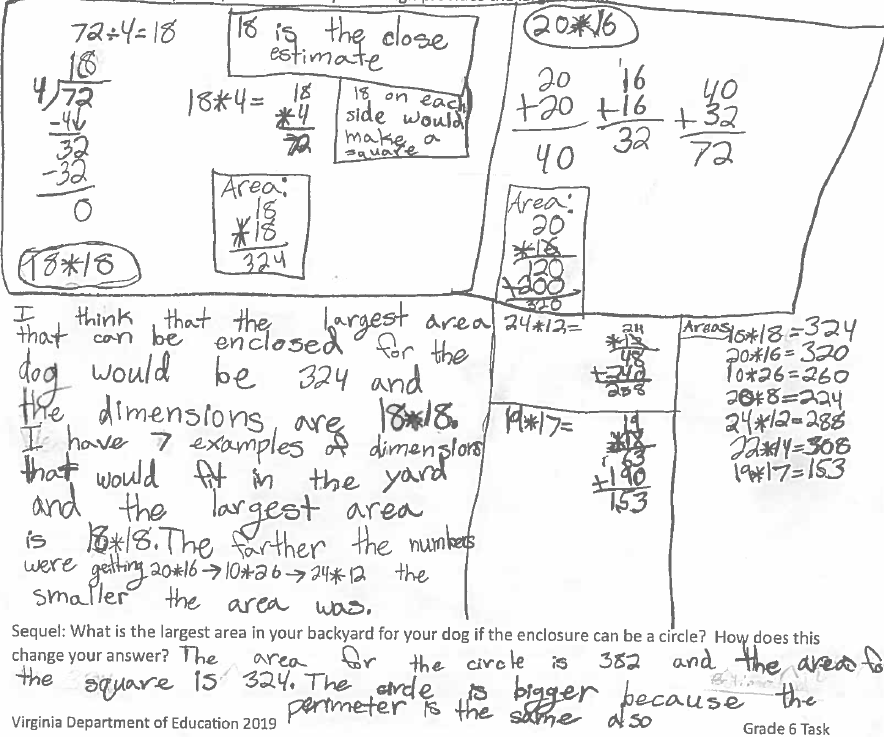 72÷4=18
18
4)72
-4↓
32
-32
0
18*18
18 is the close
estimate
18*4=
18
*4
72
18 on each
side would
make a
square
Area:
18
*18
324
20*16
20
+20
40
16
+16
32
40
+32
72
Area:
20
*16
120
+200
320
I think that the largest area
that can be enclosed for the
dog would be 324 and
the dimensions are 18*18.
I have 7 examples of dimensions
that would fit in the yard
and the largest area
is 18*18. The farther the numbers
were getting 20*16→10*26→24*12 the
smaller the area was.
24*12=
24
*12
48
+240
288
19*17=
19
63
+190
153
Areas
18*18=324
20*16=320
10*26=260
28*8=224
24*12=288
22*14=308
19*17=153
Sequel: What is the largest area in your backyard for your dog if the enclosure can be a circle? How does this
change your answer? The area for the circle is 382 and the areas fo
the square is 324. The circle is bigger because the
perimeter is the same also
Virginia Department of Education 2019
Grade 6 Task